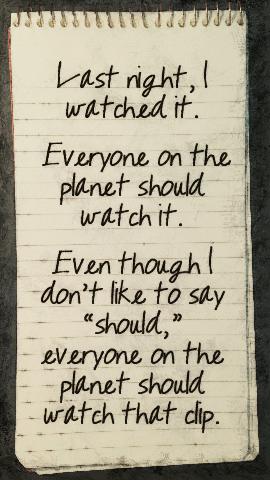 Last night, I
watched it.
Everyone on the
planet should
watch it.
Even though I
don't like to say
“should,”
everyone on the
planet should
watch that clip.